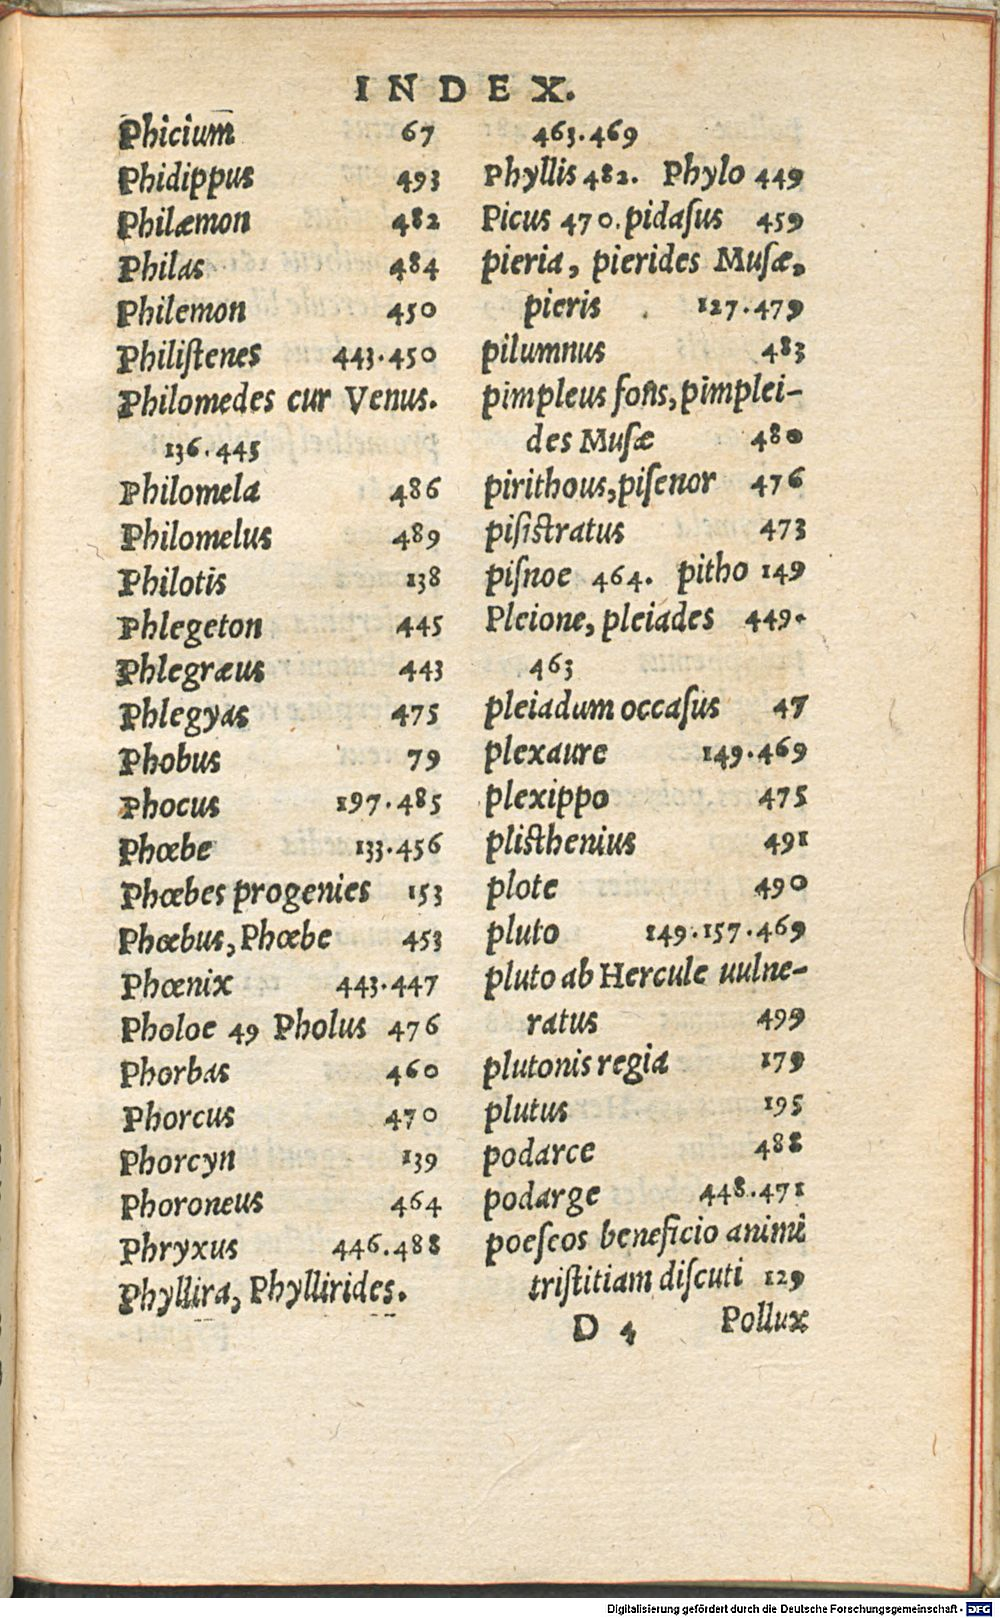 INDEX.
Phicium 67
Phidippus 493
Philæmon 482
Philas 484
Philemon 450
Philiſtenes 443.450
Philomedes cur Venus.
136.445
Philomela 486
Philomelus 489
Philotis 138
Phlegeton 445
Phlegræus 443
Phlegyas 475
Phobus 79
Phocus 197.485
Phœbe 133.456
Phœbes progenies 153
Phœbus, Phœbe 453
Phœnix 443.447
Pholoe 49 Pholus 476
Phorbas 460
Phorcus 470
Phorcyn 139
Phoroneus 464
Phryxus 446.488
Phyllira, Phyllirides.
463.469
Phyllis 482. Phylo 449
Picus 470. pidaſus 459
pieria, pierides Muſæ,
pieris 127.479
pilumnus 483
pimpleus fons, pimplei-
des Muſæ 480
pirithous, piſenor 476
piſiſtratus 473
piſnoe 464. pitho 149
Pleione, pleiades 449.
463
pleiadum occaſus 47
plexaure 149.469
plexippo 475
pliſthenius 491
plote 490
pluto 149.157.469
pluto ab Hercule uulne-
ratus 499
plutonis regia 179
plutus 195
podarce 488
podarge 448.471
poeſeos beneficio animi
triſtitiam diſcuti 129
D 4 Pollux
Digitalisierung gefördert durch die Deutsche Forschungsgemeinschaft - DFG